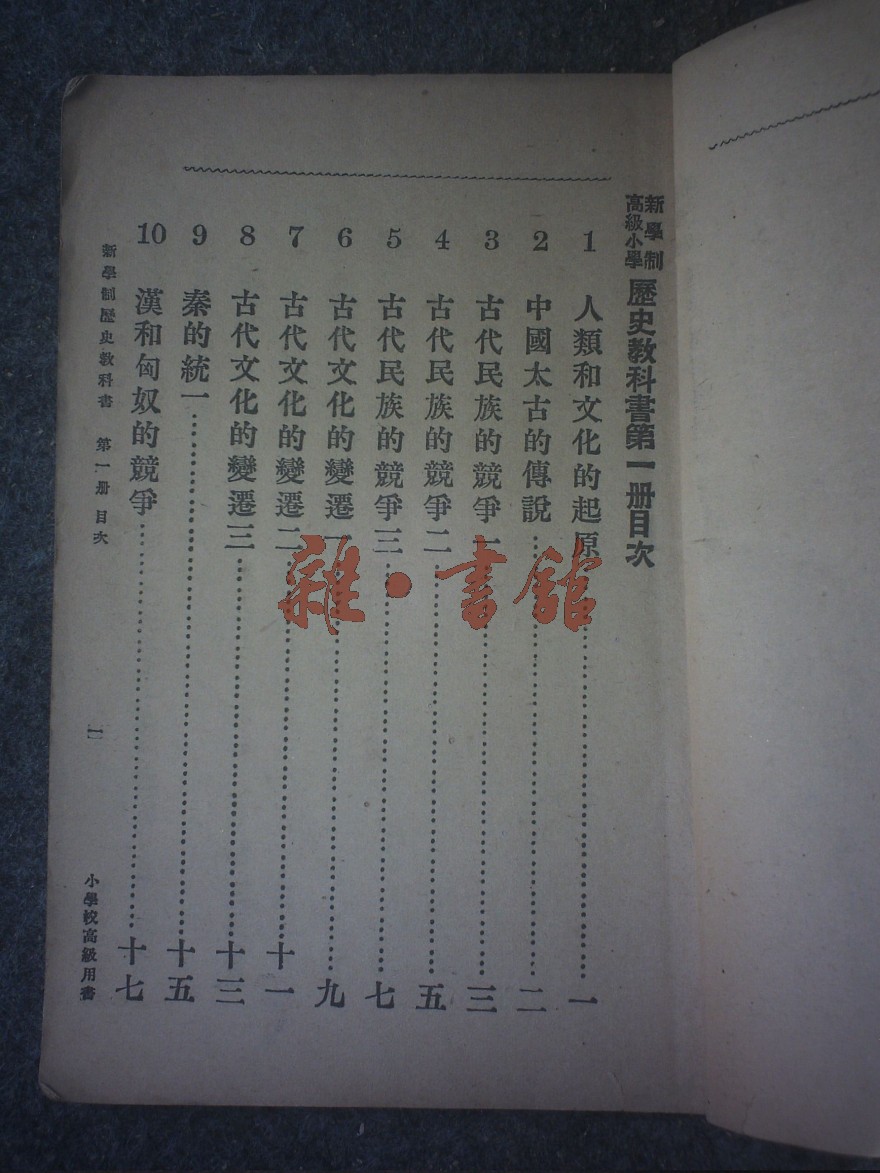 新學制高級小學歷史教科書第一册目次
1 人類和文化的起原……一
2 中國太古的傳說……二
3 古代民族的競爭一……三
4 古代民族的競爭二……五
5 古代民族的競爭三……七
6 古代文化的變遷一……九
7 古代文化的變遷二……十一
8 古代文化的變遷三……十三
9 秦的統一……十五
10 漢和匈奴的競爭……十七
新學制歷史教科書 第一册 目次
一
小學校高級用書
雜·書館